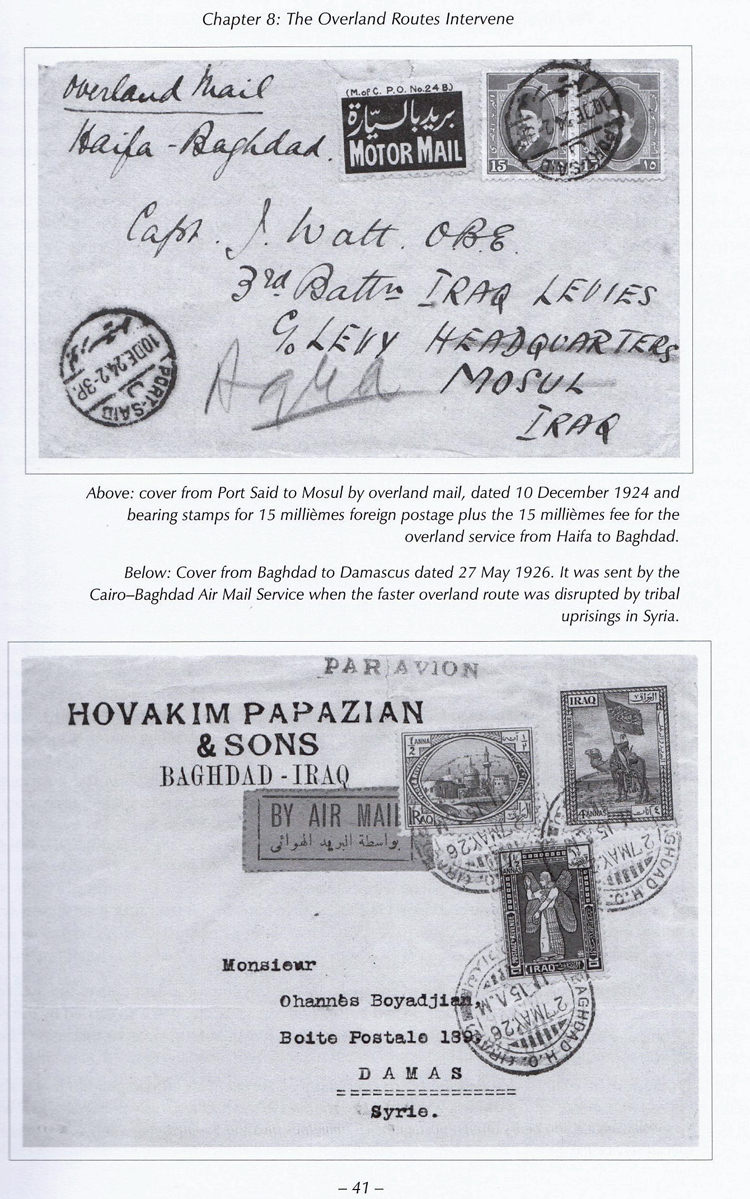 Chapter 8: The Overland Routes Intervene
Overland Mail
Haifa - Baghdad.
(M. of C. P. O. No. 24 B.)
بريد بالسيّارة
MOTOR MAIL
15 ١٥
Capt. J. Watt. OBE.
3rd Battn IRAQ LEVIES
C/o LEVY HEADQUARTERS
Aqra MOSUL
IRAQ
10 DE 24. 2-3P.
PORT-SAID
PORT-SAID
Above: cover from Port Said to Mosul by overland mail, dated 10 December 1924 and
bearing stamps for 15 millièmes foreign postage plus the 15 millièmes fee for the
overland service from Haifa to Baghdad.
Below: Cover from Baghdad to Damascus dated 27 May 1926. It was sent by the
Cairo–Baghdad Air Mail Service when the faster overland route was disrupted by tribal
uprisings in Syria.
PAR AVION
HOVAKIM PAPAZIAN
& SONS
BAGHDAD - IRAQ
BY AIR MAIL
بواسطة البريد الهوائي
1/2 ANNA
IRAQ
IRAQ العراق
4 ANNAS ٤ آنات
27 MAY 26
27 MAY 26
BAGHDAD H.O.
IRAQ
15 A.M.
27 MAY 26
BAGHDAD H.O. (IRAQ)
Monsieur
Ohannès Boyadjian,
Boite Postale 189
DAMAS
Syrie.
– 41 –